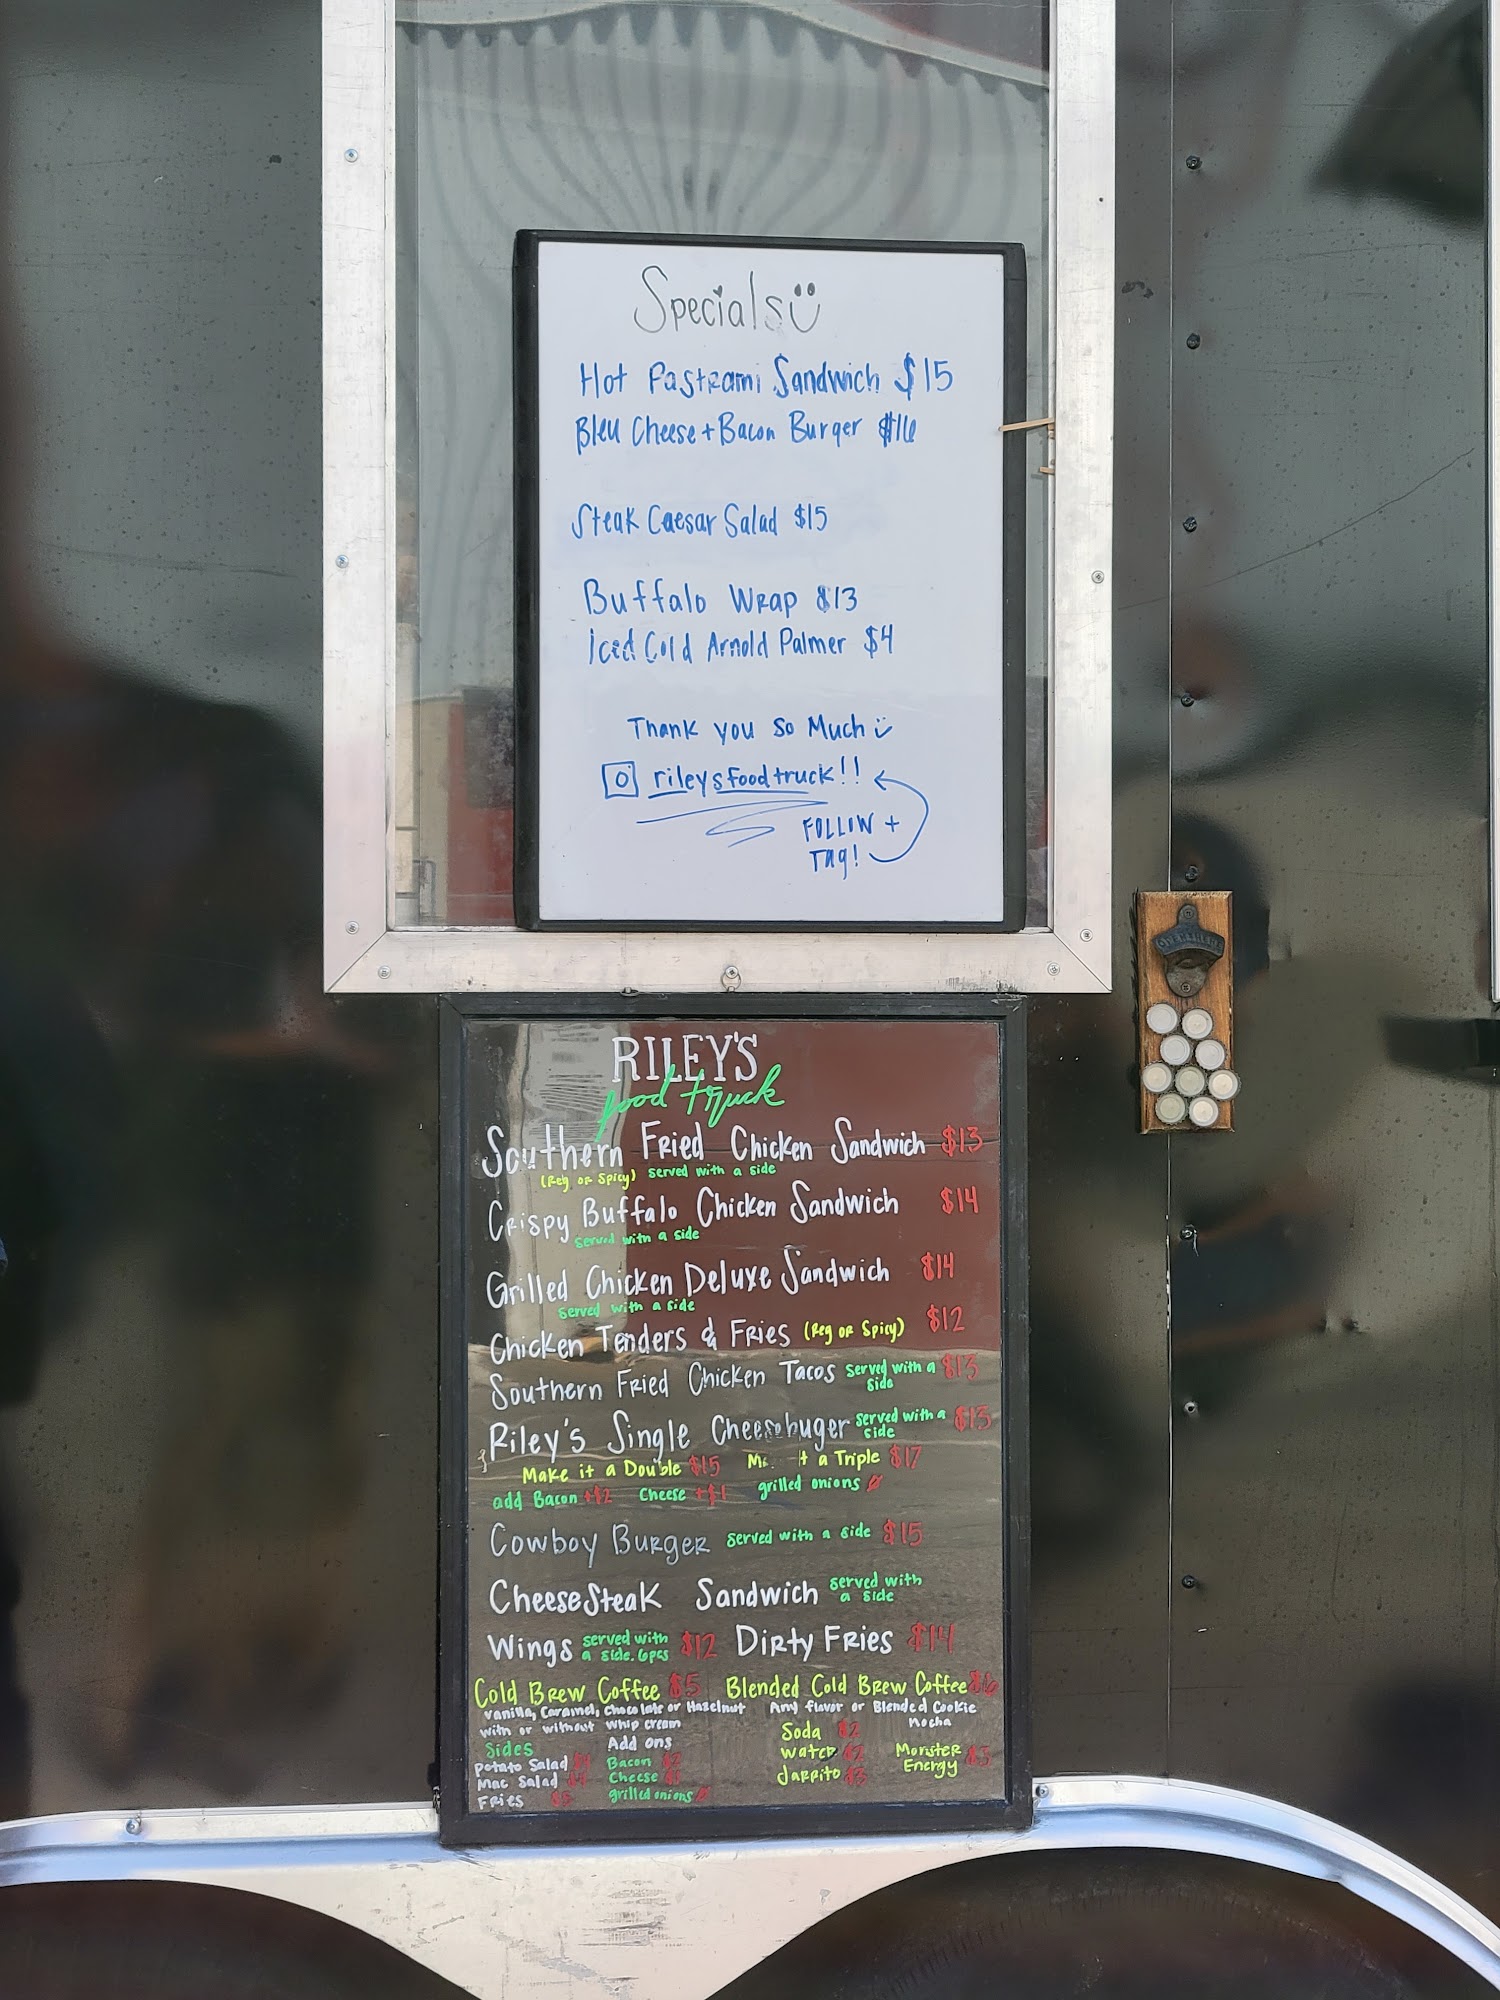 Specials
Hot Pastrami Sandwich $15
Bleu Cheese + Bacon Burger $16
Steak Caesar Salad $15
Buffalo Wrap $13
Iced Cold Arnold Palmer $4
Thank you so Much
rileysfoodtruck!!
FOLLOW +
TAg!
RILEY'S
food truck
Southern Fried Chicken Sandwich $13
(Reg or Spicy) served with a side
Crispy Buffalo Chicken Sandwich $14
served with a side
Grilled Chicken Deluxe Sandwich $14
served with a side
Chicken Tenders & Fries (Reg or Spicy) $12
Southern Fried Chicken Tacos served with a side $13
Riley's Single Cheesebuger served with a side $13
Make it a Double $15 a Triple $17
add Bacon +$2 Cheese +$1 grilled onions
Cowboy Burger served with a side $15
CheeseSteak Sandwich served with a side
Wings served with a side. 6pcs $12 Dirty Fries $14
Cold Brew Coffee $5 Blended Cold Brew Coffee $6
vanilla, Caramel, Chocolate or Hazelnut Any flavor or Blended Cookie
with or without whip cream Mocha
Sides Add ons Soda $2
Potato Salad $4 Bacon $2 Water $2 Monster Energy
Mac Salad Cheese Jarrito $3
Fries $5 grilled onions